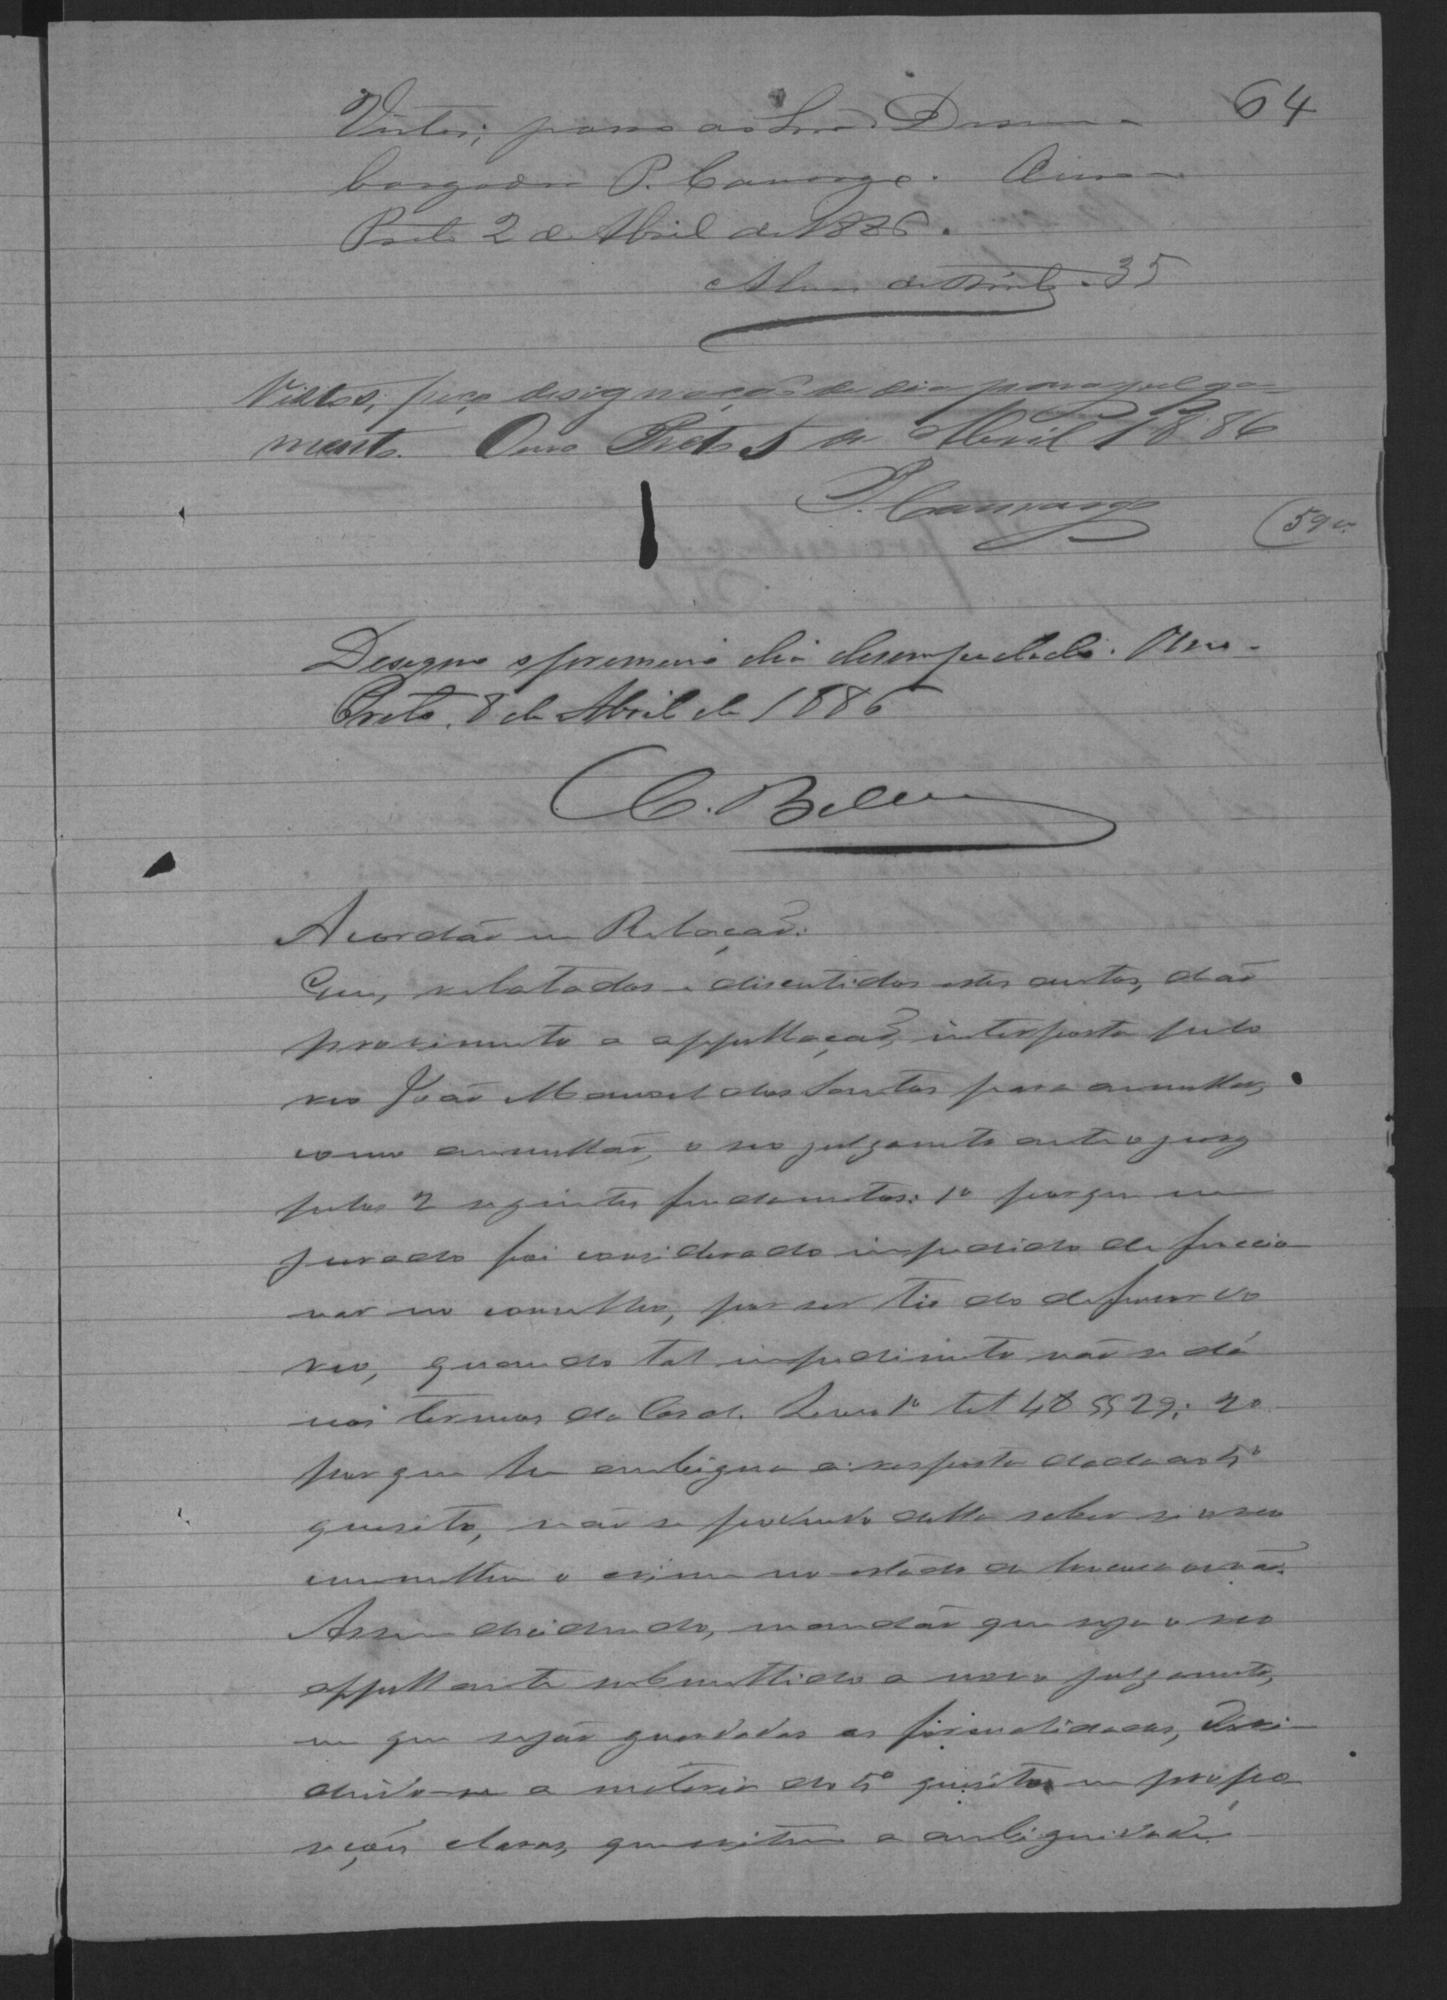 64
Vistos; passo ao Snr. Desem-
bargador P. Camargo. Ouro
Preto 2 de Abril de 1886.
Alves de Brito. 35
Vistos, peço designação de dia para julga-
mento. Ouro Preto 5 de Abril 1886
P. Camargo
(59 v.
Designo o primeiro dia desempedido. Ouro-
Preto, 8 de Abril de 1886
C. Belem
Acordão em Relação:
Que, relatados e discutidos estes autos, dão
provimento a appellação, interposta pelo
reo João Manoel dos Santos para annullar,
como annullão, o seo julgamento ante o jury
pelos 2 seguintes fundamentos: 1º porque um
jurado foi considerado impedido de funccio-
nar no conselho, por ser tio do defensor do
reo, quando tal impedimento não se dá
nos termos da Ord. Livro 1º tit 48 §§ 29; 2º
porque he ambigua a resposta dada ao 5º
quesito, não se podendo della saber si o reo
commetteu o crime no estado de loucura ou não.
Assim decidindo, mandão que seja o reo
appellante submettido a novo julgamento,
em que sejão guardadas as formalidades, divi-
dindo-se a materia do 5º quesito em propo-
sições claras, que evitem a ambiguidade.